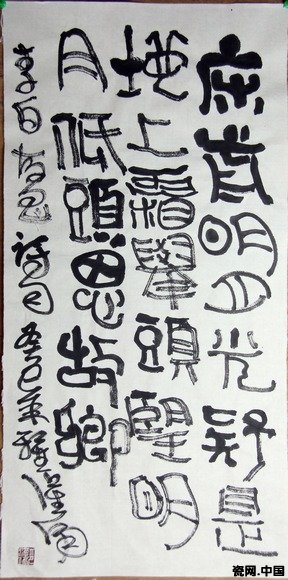 床前明月光疑是
地上霜舉頭望明
月低頭思故鄉
李白思詩句癸巳年
瓷网.中国